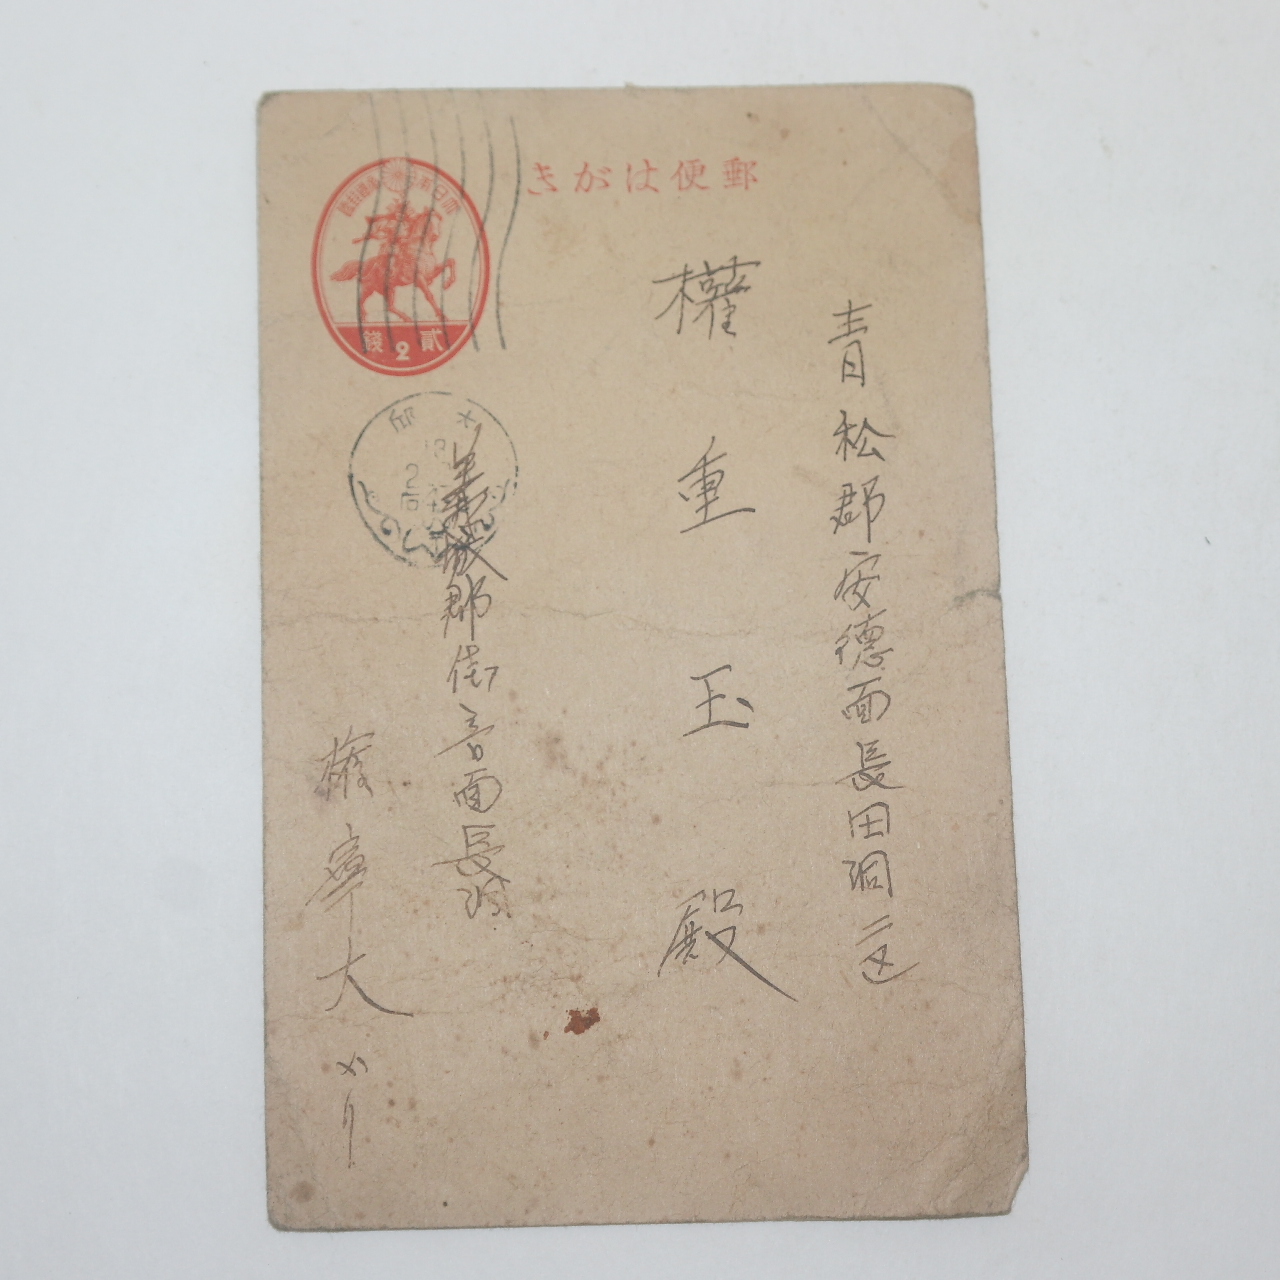 郵便はがき
大日本帝國郵便
貳2錢
大邱
青松郡安德面長田洞
權重玉殿
義城郡
面長
權寧大
ヨリ